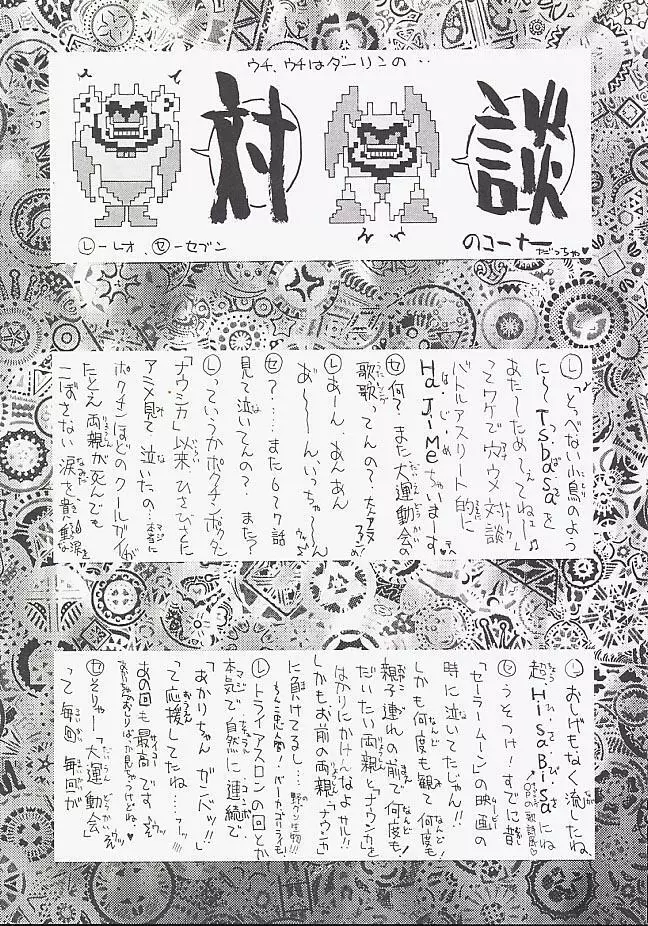 ウチ、ウチはダーリンの‥
対談
のコーナーだっちゃ♥
Ⓛーレオ、㋝ーセブン
Ⓛ「とべない小鳥のよう
に〜TSubaSaを
あた〜ためてぇてねェー」♫
ってワケでウワサ対談
バトルアスリート的に
HaJiMeちゃいまーす♥
㋝何？また大運動会の
歌歌ってんの？
Ⓛあーん、あんあん
あ〜〜〜んいっちゃ〜〜ん
㋝？……また6、7話
見て泣いてんの？また？
Ⓛっていうかボクチンボクタン
「ナウシカ」以来ひさびさに
アニメ見て泣いたの。
ボクチンほどのクールガイが
たとえ両親が死んでも
こぼさない涙を
Ⓛおしげもなく流したね、
超HiSaBiSaにね
㋝うそつけ！すでに昔
「セーラームーン」の映画の
時に泣いてたじゃん!!
しかも何度も観て何度も!
親子連れの前で何度も!
だいたい両親と「ナウシカ」を
はかりにかけんなよサル!!
しかもお前の両親「ナウシカ」
に負けてるし…
Ⓛトライアスロンの回とか
本気で自然に連続で
「あかりちゃんガンバッ!!」
って応援してたね…
あの回も最高です
㋝そりゃー「大運動会」
って毎回毎回が